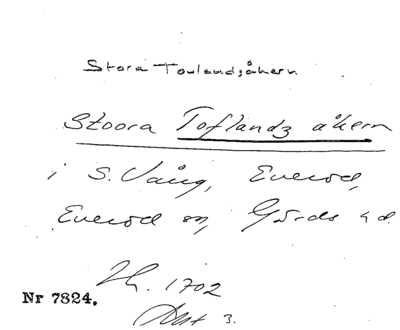 Stora Tovlandsåkern
Stoora Toflandz åkern
i S. Vång, Everöd,
Everöd sn, Gärds hd.
Lh. 1702
Nr 7824.
Akt 3.